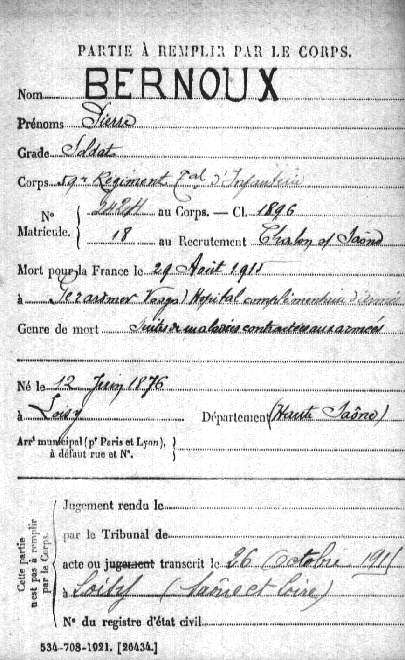 PARTIE À REMPLIR PAR LE CORPS.
Nom BERNOUX
Prénoms Pierre
Grade Soldat
Corps 59e Régiment Tal d'Infanterie
N° Matricule. { 2424 au Corps. — Cl. 1896
18 au Recrutement Chalon s/ Saône
Mort pour la France le 29 Août 1915
à Gerardmer Vosges) Hopital complémentaire d'armée
Genre de mort Suites de maladies contractées aux armées
Né le 12 Juin 1876
à Loisy Département (Haute Saône)
Arrt municipal (pr Paris et Lyon), }
à défaut rue et N°.
Cette partie n'est pas à remplir par le Corps.
Jugement rendu le
par le Tribunal de
acte ou jugement transcrit le 26 Octobre 1915
à Loisy (Saône et Loire)
N° du registre d'état civil
534-708-1921. [26434.]